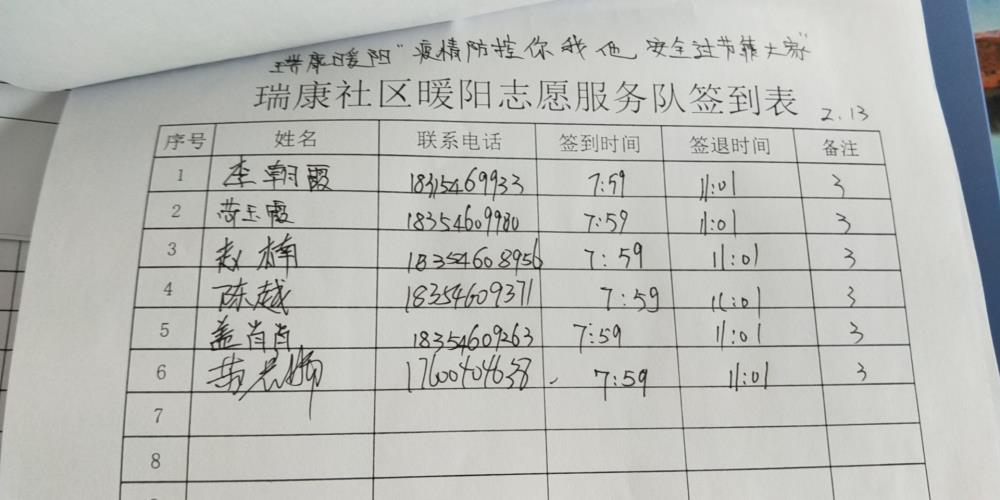 瑞康暖阳"疫情防控你我他,安全过节靠大家"
瑞康社区暖阳志愿服务队签到表
2.13
序号 姓名 联系电话 签到时间 签退时间 备注
1 李朝霞 18315469933 7:59 11:01 3
2 玉霞 18354609980 7:59 11:01 3
3 赵楠 18354608956 7:59 11:01 3
4 陈越 18354609371 7:59 11:01 3
5 盖肖肖 18354609263 7:59 11:01 3
6 17600404638 7:59 11:01 3
7
8